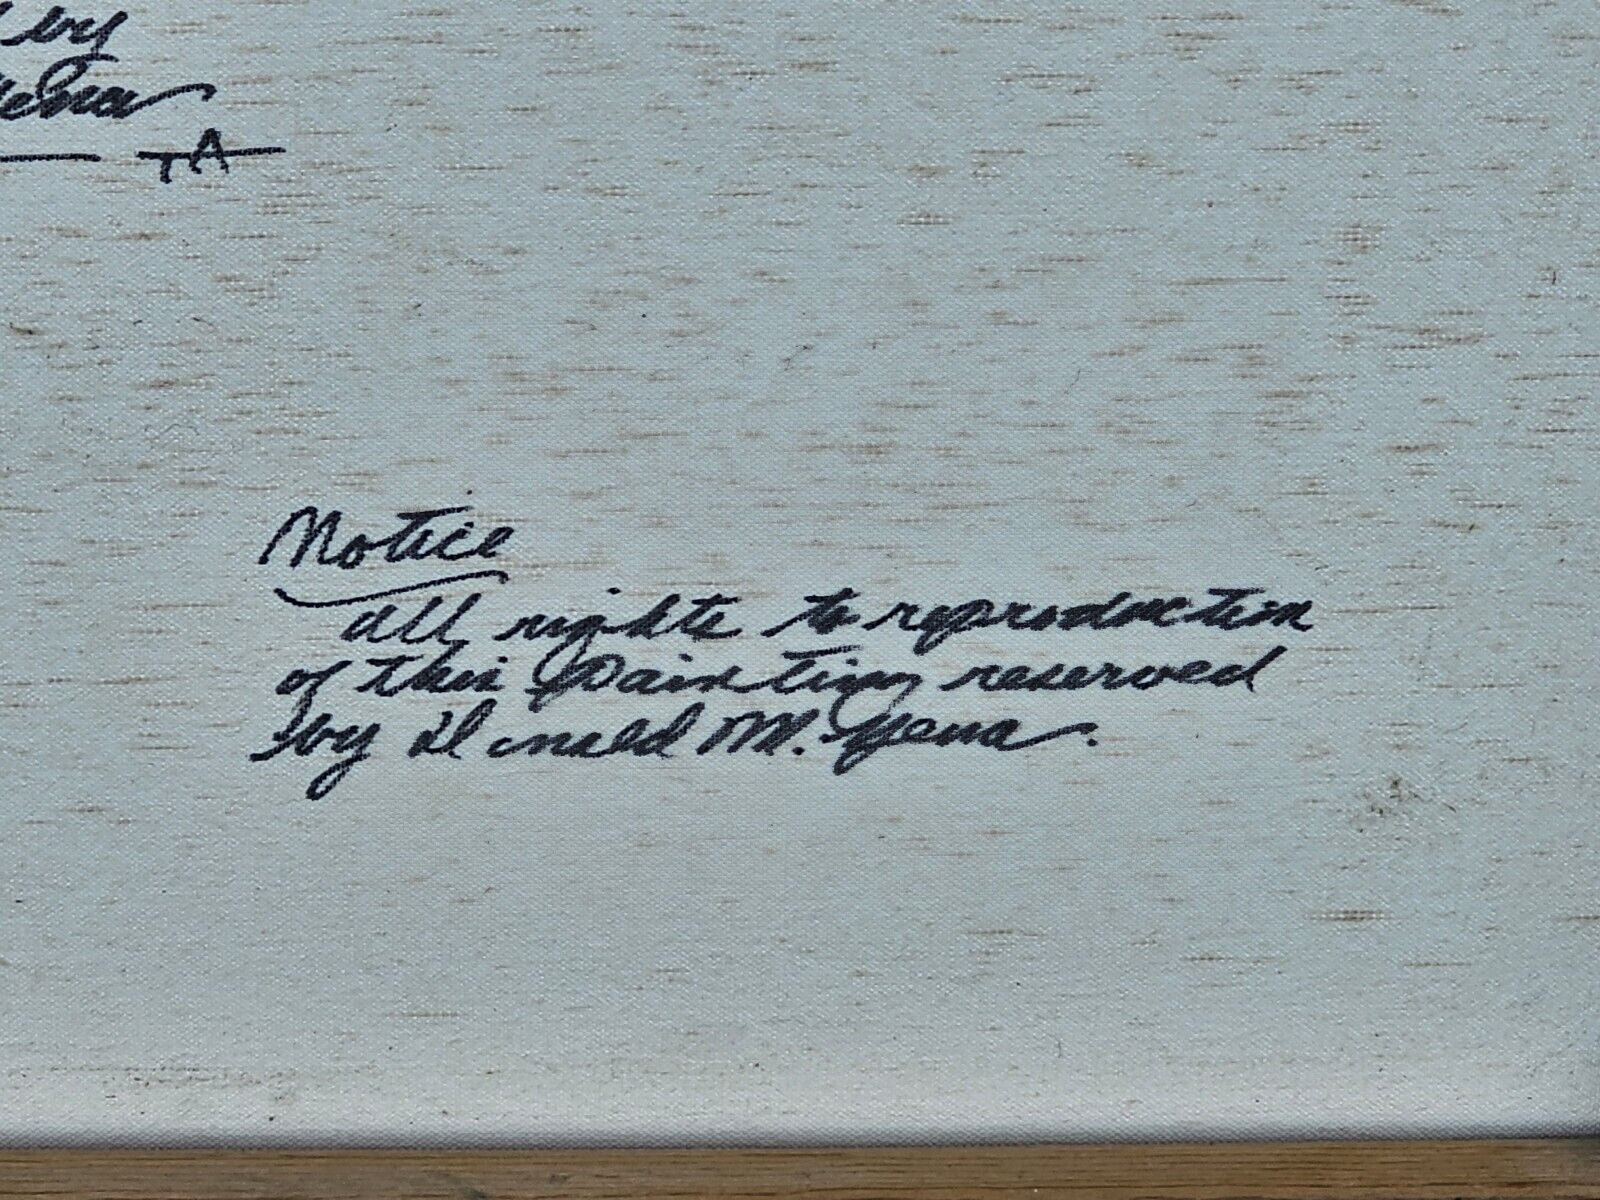 by
Yena
TA
Notice
All rights to reproduction
of this Painting reserved
by Donald M. Yena.